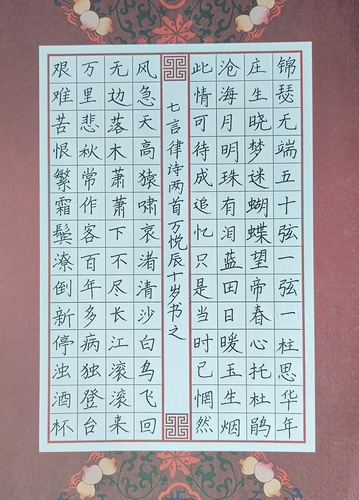 锦瑟无端五十弦一弦一柱思华年
庄生晓梦迷蝴蝶望帝春心托杜鹃
沧海月明珠有泪蓝田日暖玉生烟
此情可待成追忆只是当时已惘然
七言律诗两首万悦辰十岁书之
风急天高猿啸哀渚清沙白鸟飞回
无边落木萧萧下不尽长江滚滚来
万里悲秋常作客百年多病独登台
艰难苦恨繁霜鬓潦倒新停浊酒杯